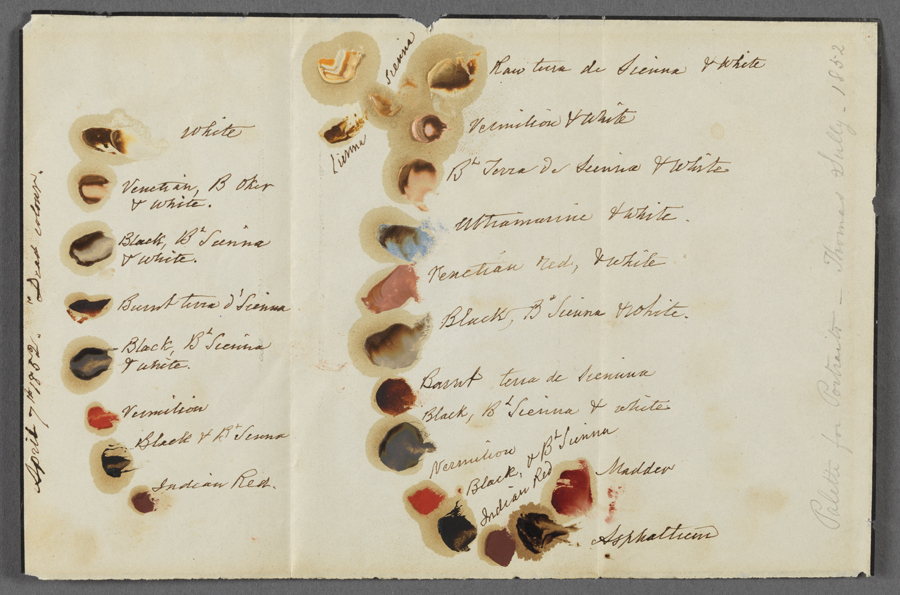 April 7th 1852. "Dead colour.
White
Venetian, B Oker
& White.
Black, Bt Sienna
& White.
Burnt terra d'Sienna
Black, Bt Sienna
& White.
Vermilion
Black & Bt Sienna
Indian Red.
Sienna
Sienna
Raw terra de Sienna & White
Vermilion & White
Bt Terra de Sienna & White
Ultramarine & White.
Venetian red, & White
Black, Bt Sienna & White.
Burnt terra de Siennna
Black, Bt Sienna & white
Vermilion
Black, & Bt Sienna
Indian Red
Madder
Asphaltum
Palette for Portraits — Thomas Sully - 1852